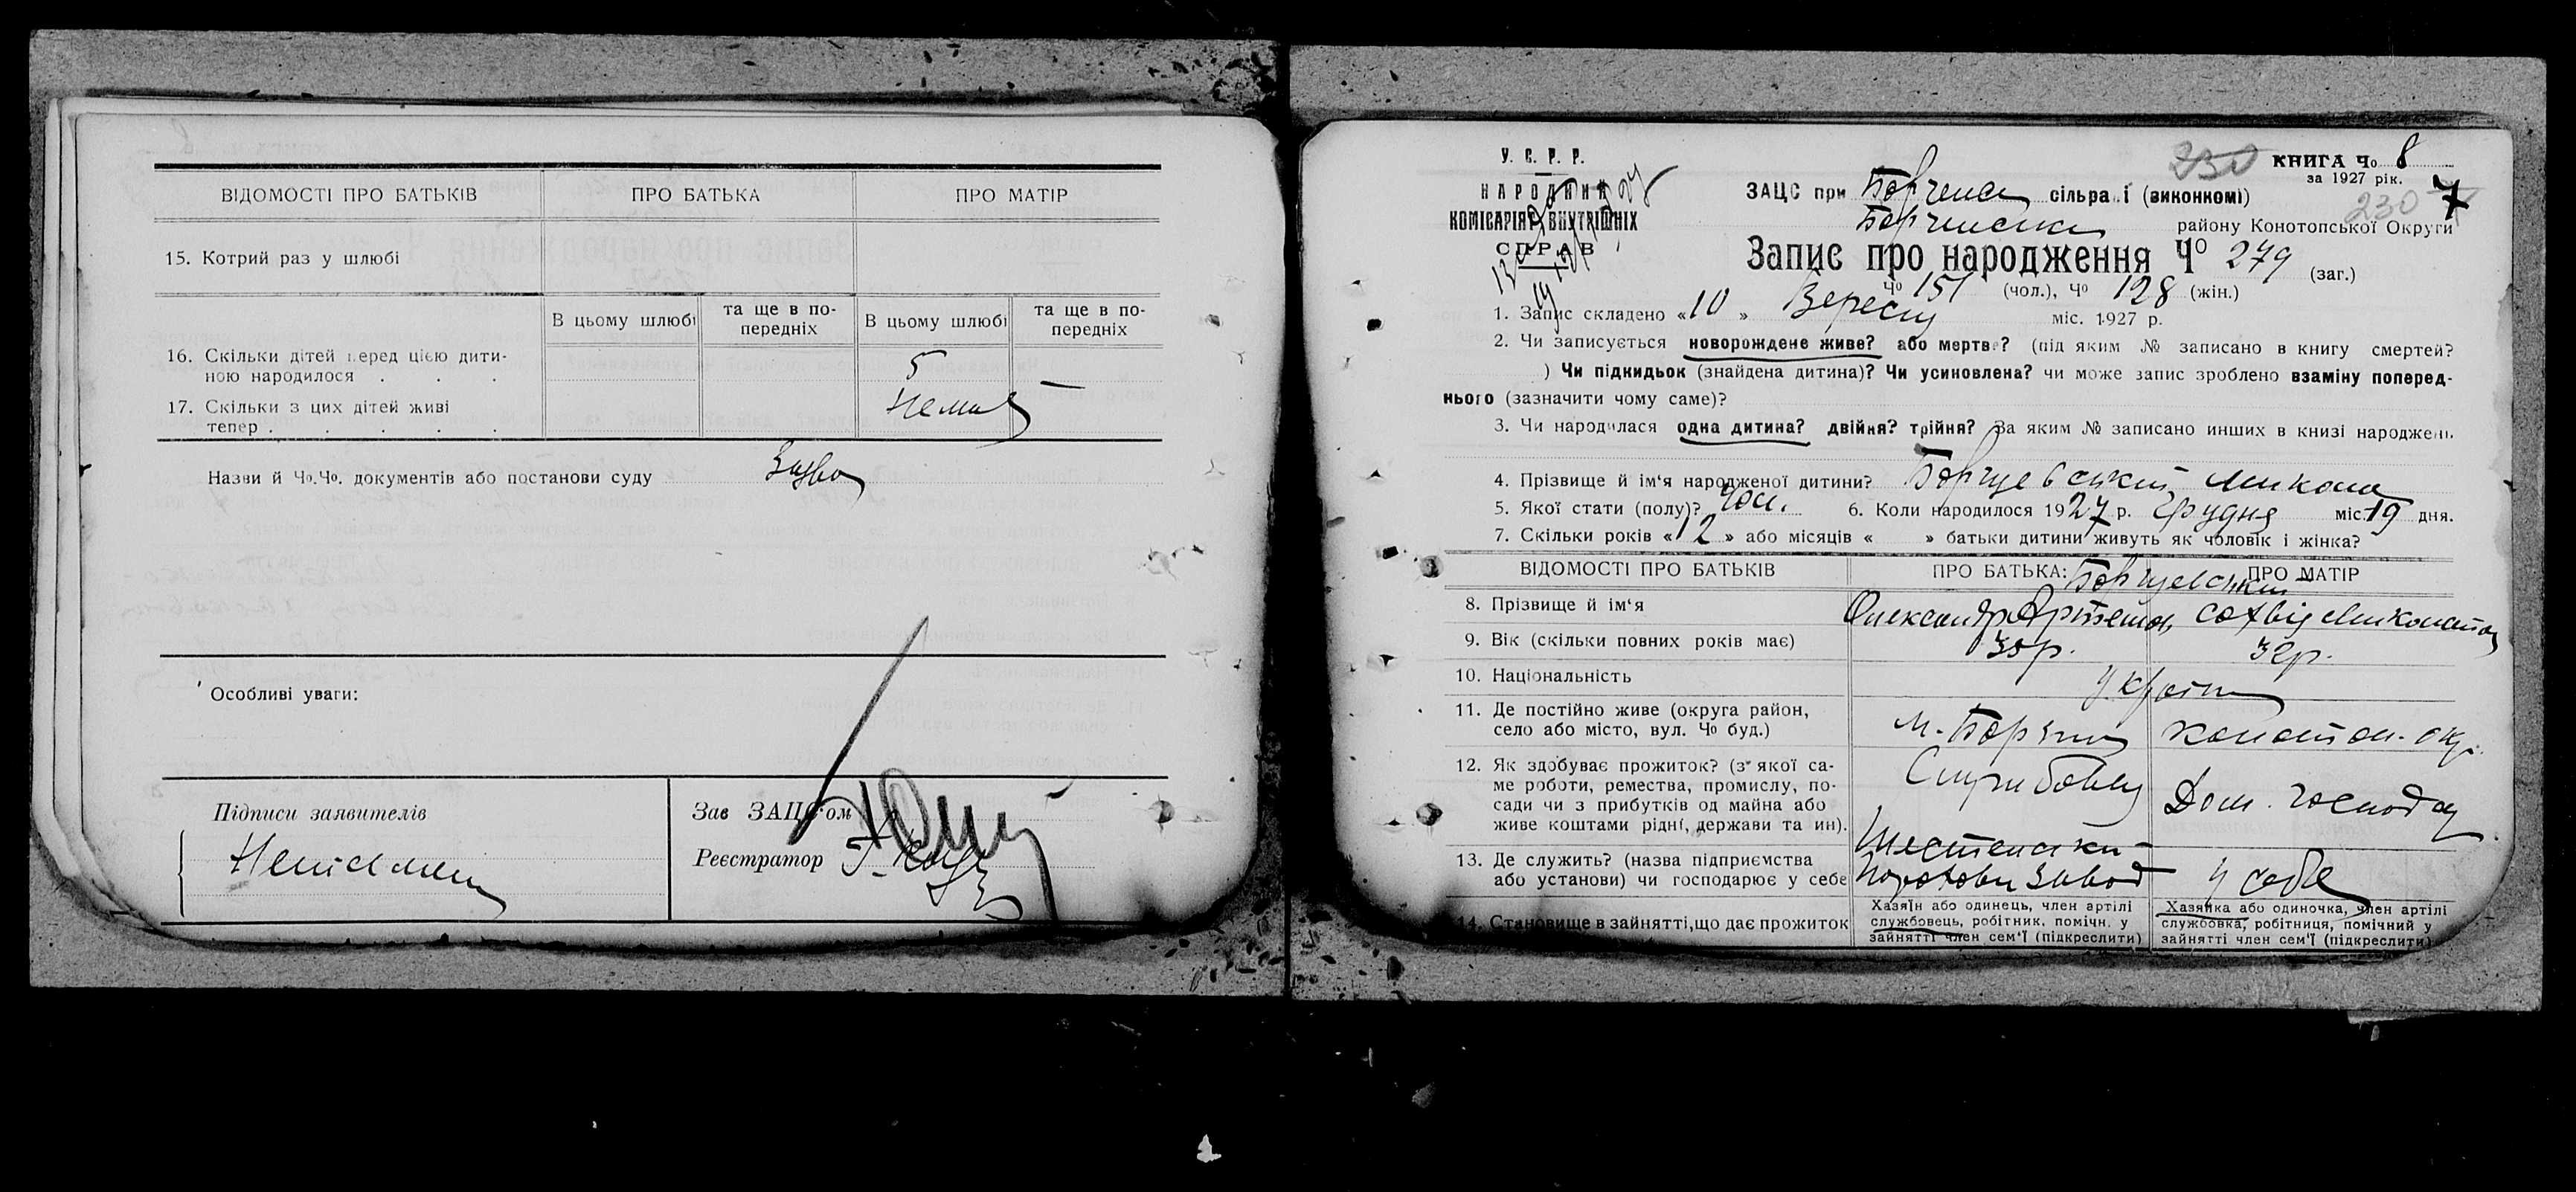 ВІДОМОСТІ ПРО БАТЬКІВ ПРО БАТЬКА ПРО МАТІР
15. Котрий раз у шлюбі
В цьому шлюбі та ще в по-передніх В цьому шлюбі та ще в по-передніх
16. Скільки дітей перед цією дити-
ною народилося . . . 5 —
17. Скільки з цих дітей живі
тепер . . . . . Нема
Назви й Чо.Чо. документів або постанови суду
Особливі уваги:
Підписи заявителів
Зав ЗАЦС'ом
Реєстратор
У. С. Р. Р.
НАРОДНИЙ
КОМІСАРІЯТ ВНУТРІШНІХ
СПРАВ
230 КНИГА Чо 8
за 1927 рік.
230 7
ЗАЦС при сільраді (виконкомі)
району Конотопської Округи
Запис про народження Чо 279 (заг.)
Чо 151 (чол.), Чо 128 (жін.)
1. Запис складено «10» Вересня міс. 1927 р.
2. Чи записується новорождене живе? або мертве? (під яким № записано в книгу смертей?
) Чи підкидьок (знайдена дитина)? Чи усиновлена? чи може запис зроблено взаміну поперед-
нього (зазначити чому саме)?
3. Чи народилася одна дитина? двійня? трійня? За яким № записано инших в книзі народжень
4. Прізвище й ім'я народженої дитини? Борщевський Микола
5. Якої стати (полу)? Чол. 6. Коли народилося 1927 р. Грудня міс. 19 дня.
7. Скільки років «12» або місяців « » батьки дитини живуть як чоловік і жінка?
ВІДОМОСТІ ПРО БАТЬКІВ ПРО БАТЬКА: ПРО МАТІР
Борщевські
8. Прізвище й ім'я Олександр Миколаївна
9. Вік (скільки повних років має)
10. Національність Україн
11. Де постійно живе (округа район,
село або місто, вул. Чо буд.) м. Борзна Конотоп. окр.
12. Як здобуває прожиток? (з якої са-
ме роботи, ремества, промислу, по-
сади чи з прибутків од майна або
живе коштами рідні, держави та ин). Дом. господар
13. Де служить? (назва підприємства
або установи) чи господарює у себе завод у себе
14. Становище в зайнятті, що дає прожиток
Хазяїн або одинець, член артілі
службовець, робітник. помічн. у
зайнятті член сем'ї (підкреслити)
Хазяйка або одиночка, член артілі
службовка, робітниця, помічний у
зайнятті член сем'ї (підкреслити)